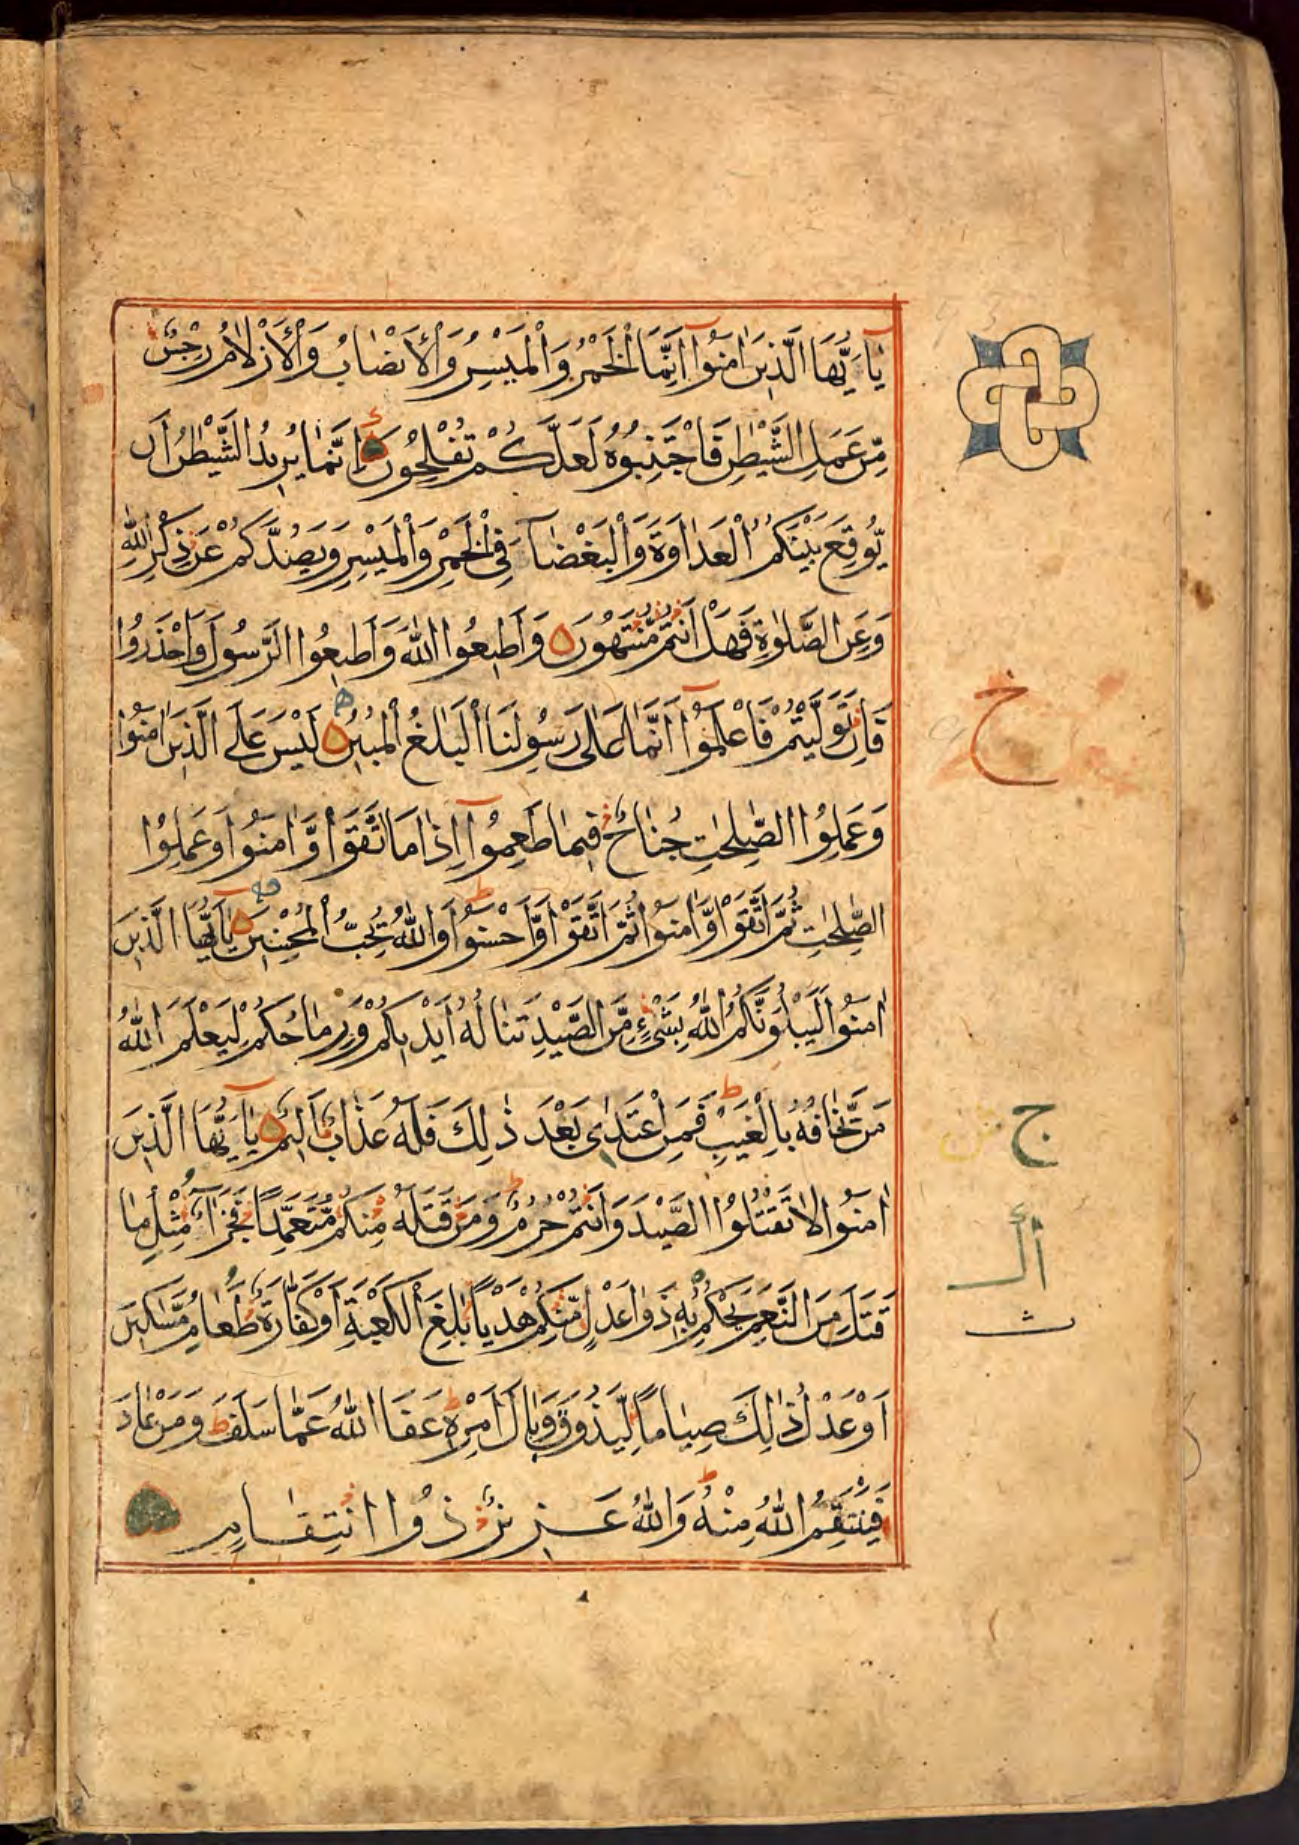 يٰٓاَيُّهَا الَّذِيْنَ اٰمَنُوْٓا اِنَّمَا الْخَمْرُ وَالْمَيْسِرُ وَالْاَنْصَابُ وَالْاَزْلَامُ رِجْسٌ
مِّنْ عَمَلِ الشَّيْطٰنِ فَاجْتَنِبُوْهُ لَعَلَّكُمْ تُفْلِحُوْنَ اِنَّمَا يُرِيْدُ الشَّيْطٰنُ اَنْ
يُّوْقِعَ بَيْنَكُمُ الْعَدَاوَةَ وَالْبَغْضَآءَ فِى الْخَمْرِ وَالْمَيْسِرِ وَيَصُدَّكُمْ عَنْ ذِكْرِ اللّٰهِ
وَعَنِ الصَّلٰوةِ فَهَلْ اَنْتُمْ مُّنْتَهُوْنَ وَاَطِيْعُوا اللّٰهَ وَاَطِيْعُوا الرَّسُوْلَ وَاحْذَرُوْا
فَاِنْ تَوَلَّيْتُمْ فَاعْلَمُوْٓا اَنَّمَا عَلٰى رَسُوْلِنَا الْبَلٰغُ الْمُبِيْنُ لَيْسَ عَلَى الَّذِيْنَ اٰمَنُوْا
وَعَمِلُوا الصّٰلِحٰتِ جُنَاحٌ فِيْمَا طَعِمُوْٓا اِذَا مَا اتَّقَوْا وَّاٰمَنُوْا وَعَمِلُوا
الصّٰلِحٰتِ ثُمَّ اتَّقَوْا وَّاٰمَنُوْا ثُمَّ اتَّقَوْا وَّاَحْسَنُوْا وَاللّٰهُ يُحِبُّ الْمُحْسِنِيْنَ يٰٓاَيُّهَا الَّذِيْنَ
اٰمَنُوْا لَيَبْلُوَنَّكُمُ اللّٰهُ بِشَىْءٍ مِّنَ الصَّيْدِ تَنَالُهٗٓ اَيْدِيْكُمْ وَرِمَاحُكُمْ لِيَعْلَمَ اللّٰهُ
مَنْ يَّخَافُهٗ بِالْغَيْبِ فَمَنِ اعْتَدٰى بَعْدَ ذٰلِكَ فَلَهٗ عَذَابٌ اَلِيْمٌ يٰٓاَيُّهَا الَّذِيْنَ
اٰمَنُوْا لَا تَقْتُلُوا الصَّيْدَ وَاَنْتُمْ حُرُمٌ وَمَنْ قَتَلَهٗ مِنْكُمْ مُّتَعَمِّدًا فَجَزَآءٌ مِّثْلُ مَا
قَتَلَ مِنَ النَّعَمِ يَحْكُمُ بِهٖ ذَوَا عَدْلٍ مِّنْكُمْ هَدْيًا بٰلِغَ الْكَعْبَةِ اَوْ كَفَّارَةٌ طَعَامُ مَسٰكِيْنَ
اَوْ عَدْلُ ذٰلِكَ صِيَامًا لِّيَذُوْقَ وَبَالَ اَمْرِهٖ عَفَا اللّٰهُ عَمَّا سَلَفَ وَمَنْ عَادَ
فَيَنْتَقِمُ اللّٰهُ مِنْهُ وَاللّٰهُ عَزِيْزٌ ذُوا انْتِقَامٍ